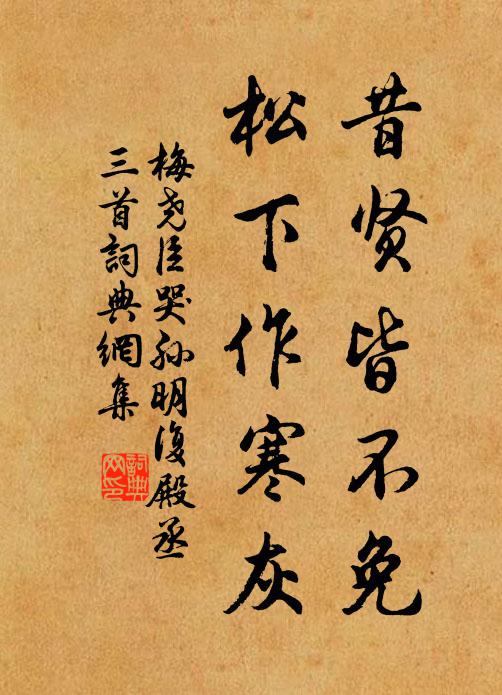 昔贤皆不免
松下作寒灰
梅尧臣哭孙明復殿丞
三首詞典網集
詞典
网印